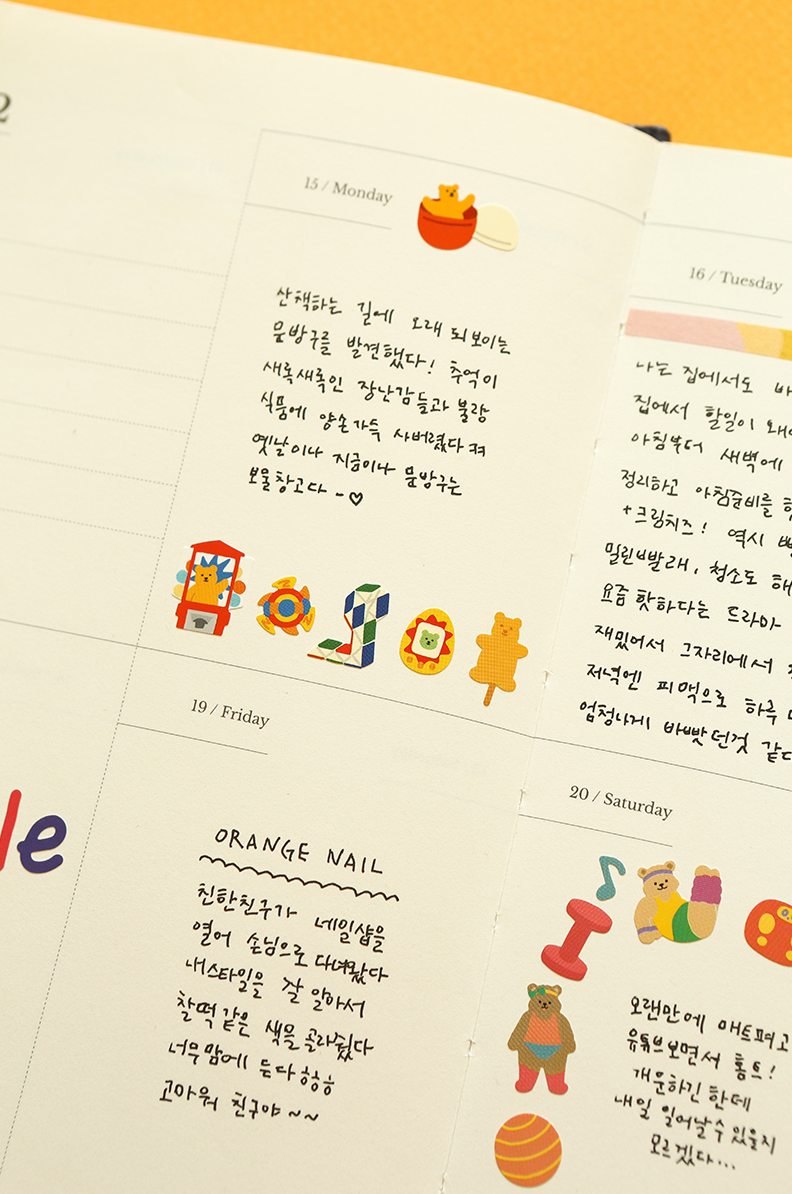 2
15 / Monday
산책하는 길에 오래 되 보이는
문방구를 발견했다! 추억이
새록새록인 장난감들과 불량
식품에 양손가득 사버렸다ㅋㅋ
옛날이나 지금이나 문방구는
보물창고다 ~♡
16 / Tuesday
나는 집에서도 바
집에서 할일이 왜이
아침부터 새벽에
정리하고 아침준비를 하
+크림치즈! 역시 빵
밀린 빨래, 청소도 해
요즘 핫하다는 드라마
재밌어서 그자리에서
저녁엔 피맥으로 하루
엄청나게 바빴던것 같다
le
19 / Friday
ORANGE NAIL
친한친구가 네일샵을
열어 손님으로 다녀왔다
내스타일을 잘 알아서
찰떡 같은 색을 골라줬다
너무 맘에 든다 ㅎㅎㅎ
고마워 친구야 ~~
20 / Saturday
오랜만에 매트펴고
유튜브보면서 홈트!
개운하긴 한데
내일 일어날수 있을지
모르겠다...